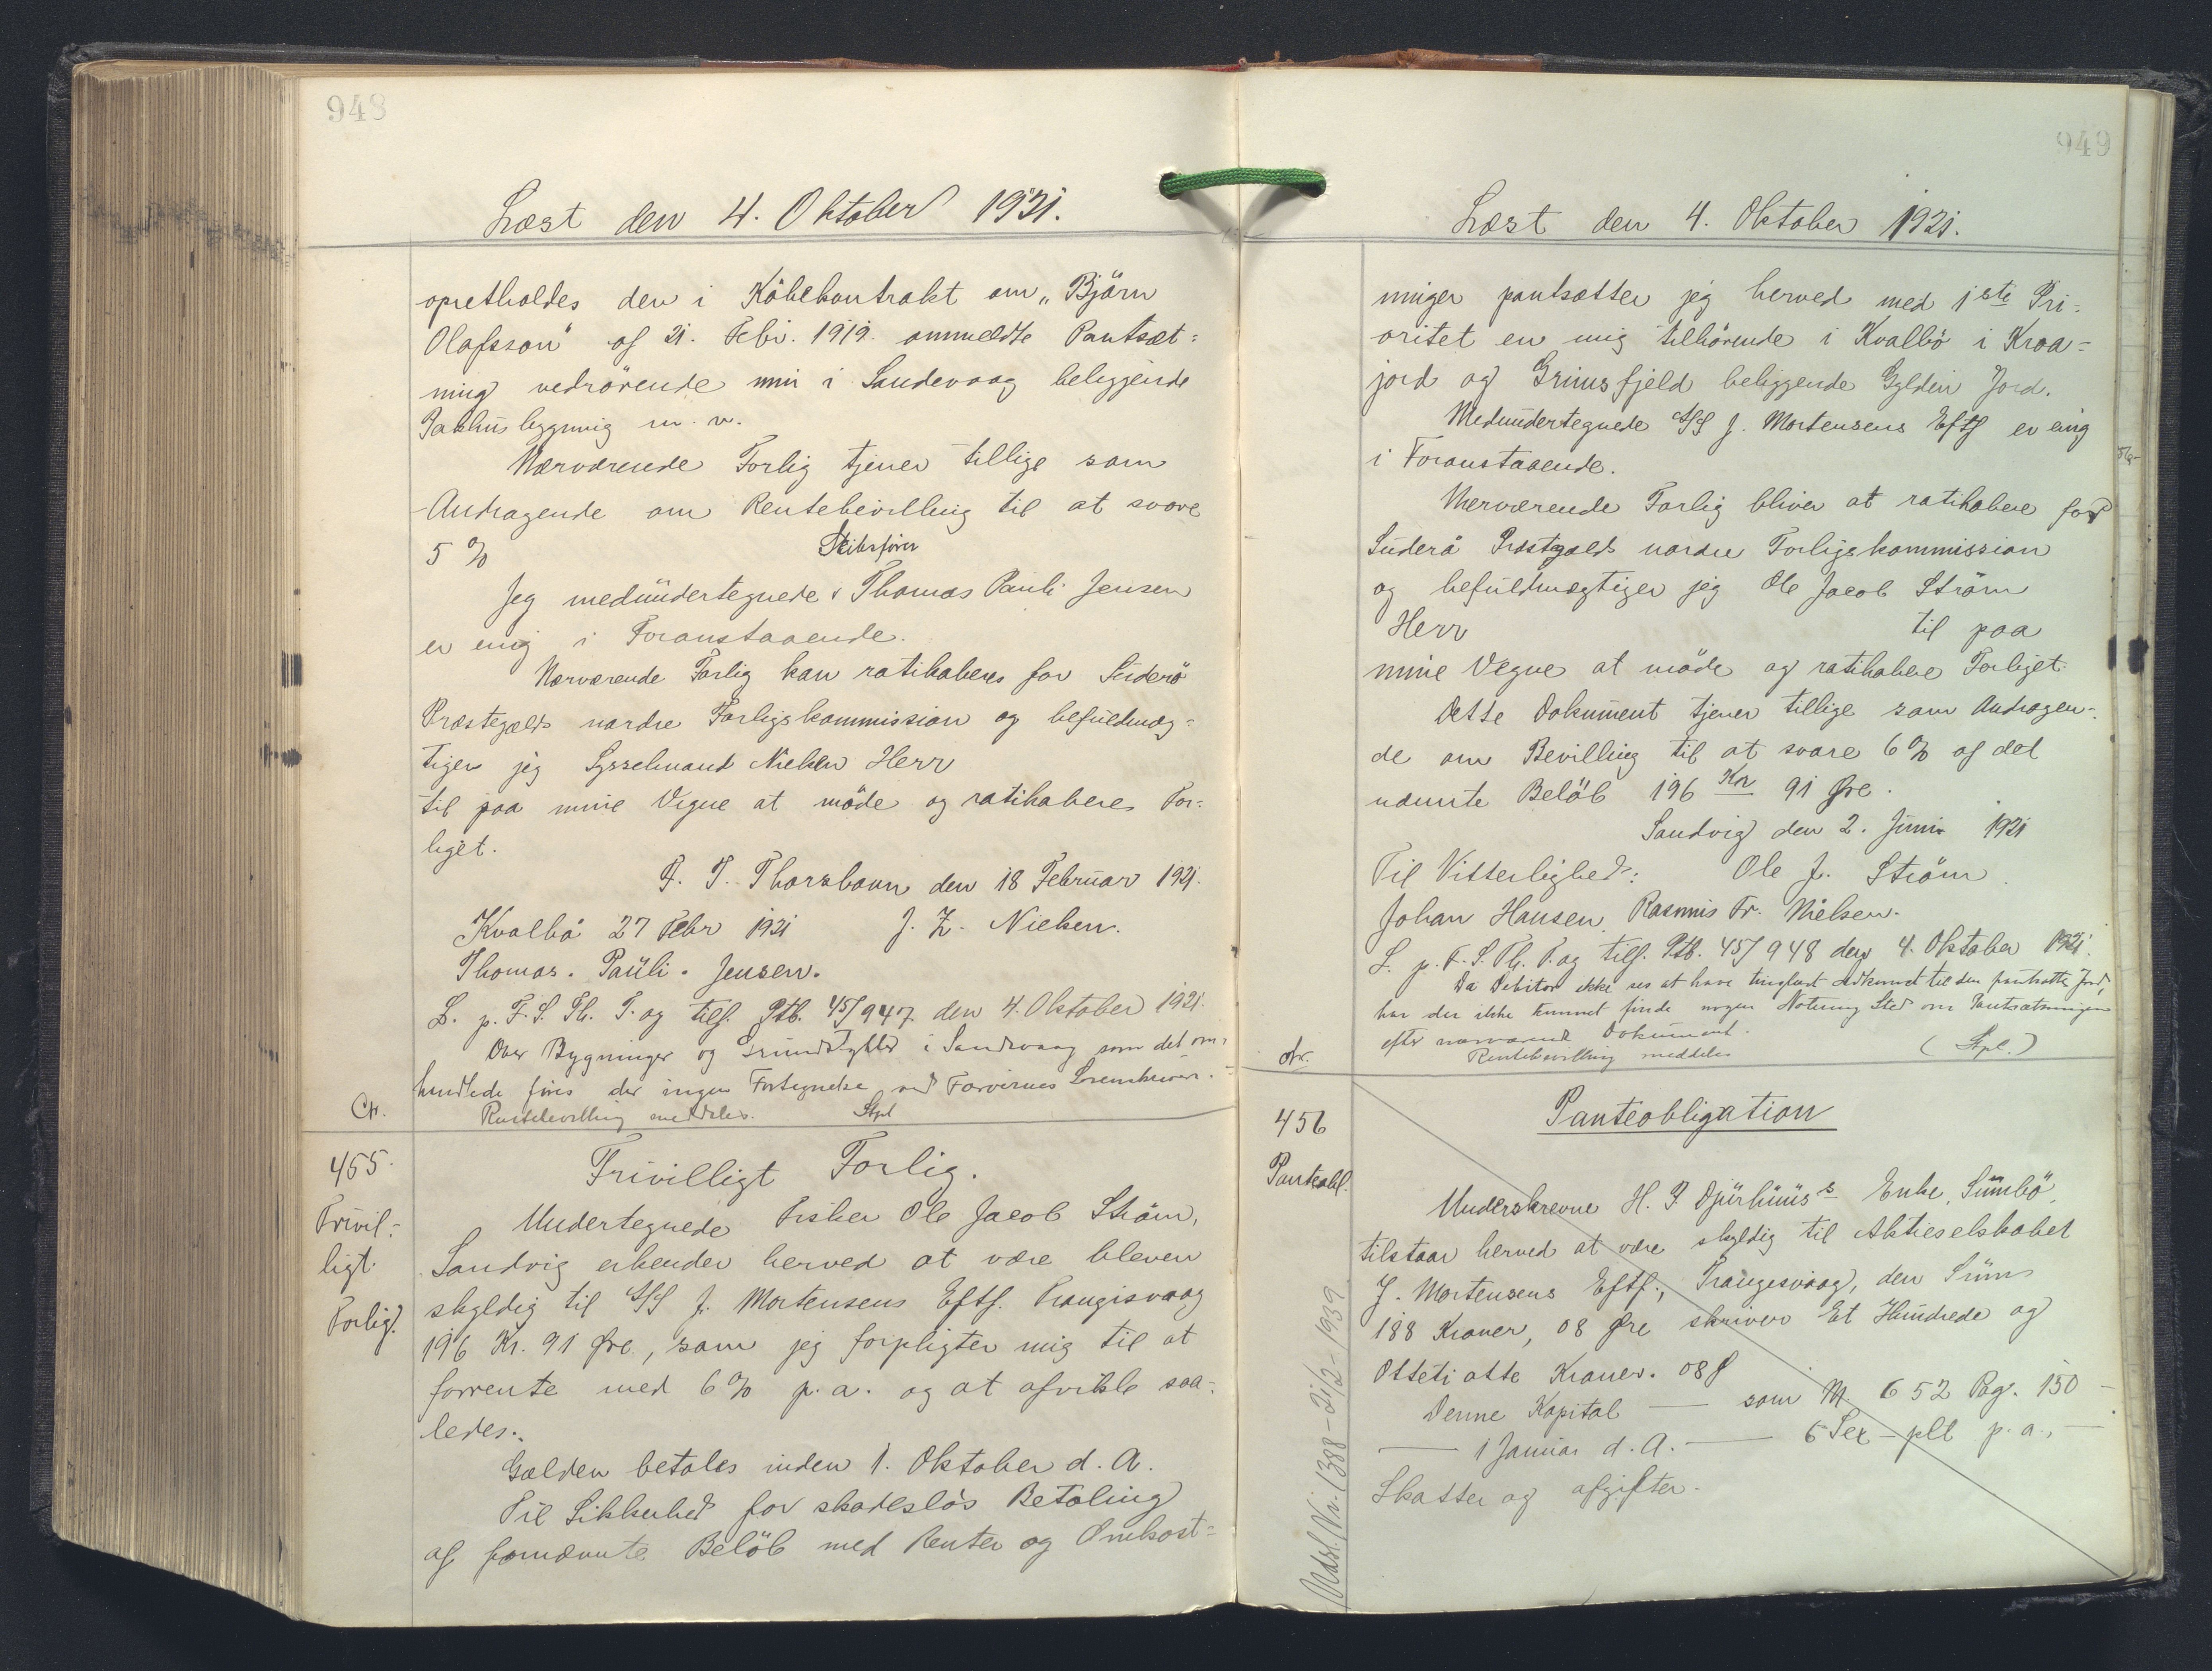 948
Læst den 4. Oktober 1921.
opretholdes den i Köbekontrakt om „Björn
Olafsson" af 21. Febr. 1919. anmeldte Pantsæt-
ning vedrörende min i Sandevaag beliggende
Pakhusbygning m. v.
Nærværende Forlig tjener tillige som
Andragende om Rentebevilling til at svare
5 %
Skibsfører
Jeg medundertegnede Thomas Pauli Jensen
er enig i Foranstaaende.
Nærværende Forlig kan ratihaberes for Suderö
Præstegælds nordre Forligskommission og befuldmæg-
tiger jeg Sysselmand Nielsen Herr
til paa mine Vegne at möde og ratihabere For-
liget.
P. T. Thorshavn den 18 Februar 1921.
Kvalbö 27 Febr 1921 J. Z. Nielsen.
Thomas. Pauli. Jensen.
L. p. F. S. Th. T. og tilf. Ptb. 45/947 den 4. Oktober 1921.
Over Bygninger og Grundstykker i Sandevaag som det om-
handlede føres der ingen Fortegnelse ved Færøernes Sorenskriveri.
Ch. Rentebevilling meddeles. Stpl
455.
Frivil-
ligt
Forlig.
Frivilligt Forlig.
Undertegnede Fisker Ole Jacob Ström,
Sandvig erkender herved at være bleven
skyldig til A/S J. Mortensens Eftf. Trangisvaag
196 Kr. 91 Øre, som jeg forpligter mig til at
forrente med 6 % p. a. og at afvikle saa-
ledes:
Gælden betales inden 1. Oktober d. A.
Til Sikkerhed for skadeslös Betaling
af fornævnte Belöb med Renter og Omkost-
949
Læst den 4. Oktober 1921.
ninger pantsætter jeg herved med 1ste Pri-
oritet en mig tilhörende i Kvalbö i Kroa-
jord og Grimsfjeld beliggende Gylden Jord.
Medundertegnede A/S J. Mortensens Eftf er enig
i Foranstaaende.
Nærværende Forlig bliver at ratihabere for
Suderö Præstegælds nordre Forligskommission
og befuldmægtiger jeg Ole Jacob Ström
Herr til paa
mine Vegne at möde og ratihabere Forliget.
Dette Dokument tjener tillige som Andragen-
de om Bevilling til at svare 6 % af det
nævnte Belöb 196 Kr 91 Øre.
Sandvig den 2. Juni 1921
Til Vitterlighed: Ole J. Ström.
Johan Hansen. Rasmus Fr. Nielsen.
L. p. F. S. Th. T. og tilf. Ptb. 45/948 den 4. Oktober 1921.
Da Debitor ikke ses at have tinglæst Adkomst til den pantsatte Jord,
har der ikke kunnet finde nogen Notering Sted om Pantsætningen
efter nærværende Dokument.
Rentebevilling meddeles (Stpl.)
456
Panteobl.
Panteobligation
Underskrevne H. P. Djurhuus's Enke, Sumbö,
tilstaar herved at være skyldig til Aktieselskabet
J. Mortensens Eftf., Trangisvaag, den Sum
188 Kroner, 08 Øre skriver Et Hundrede og
Otteti otte Kroner. 08 Ø
Denne Kapital — som № 652 Pag. 150 —
— 1 Januar d. A. — 6 Sex — pCt p. a., —
Skatter og afgifter.
Udsl./Nr. 1388 - 21/2 - 1939